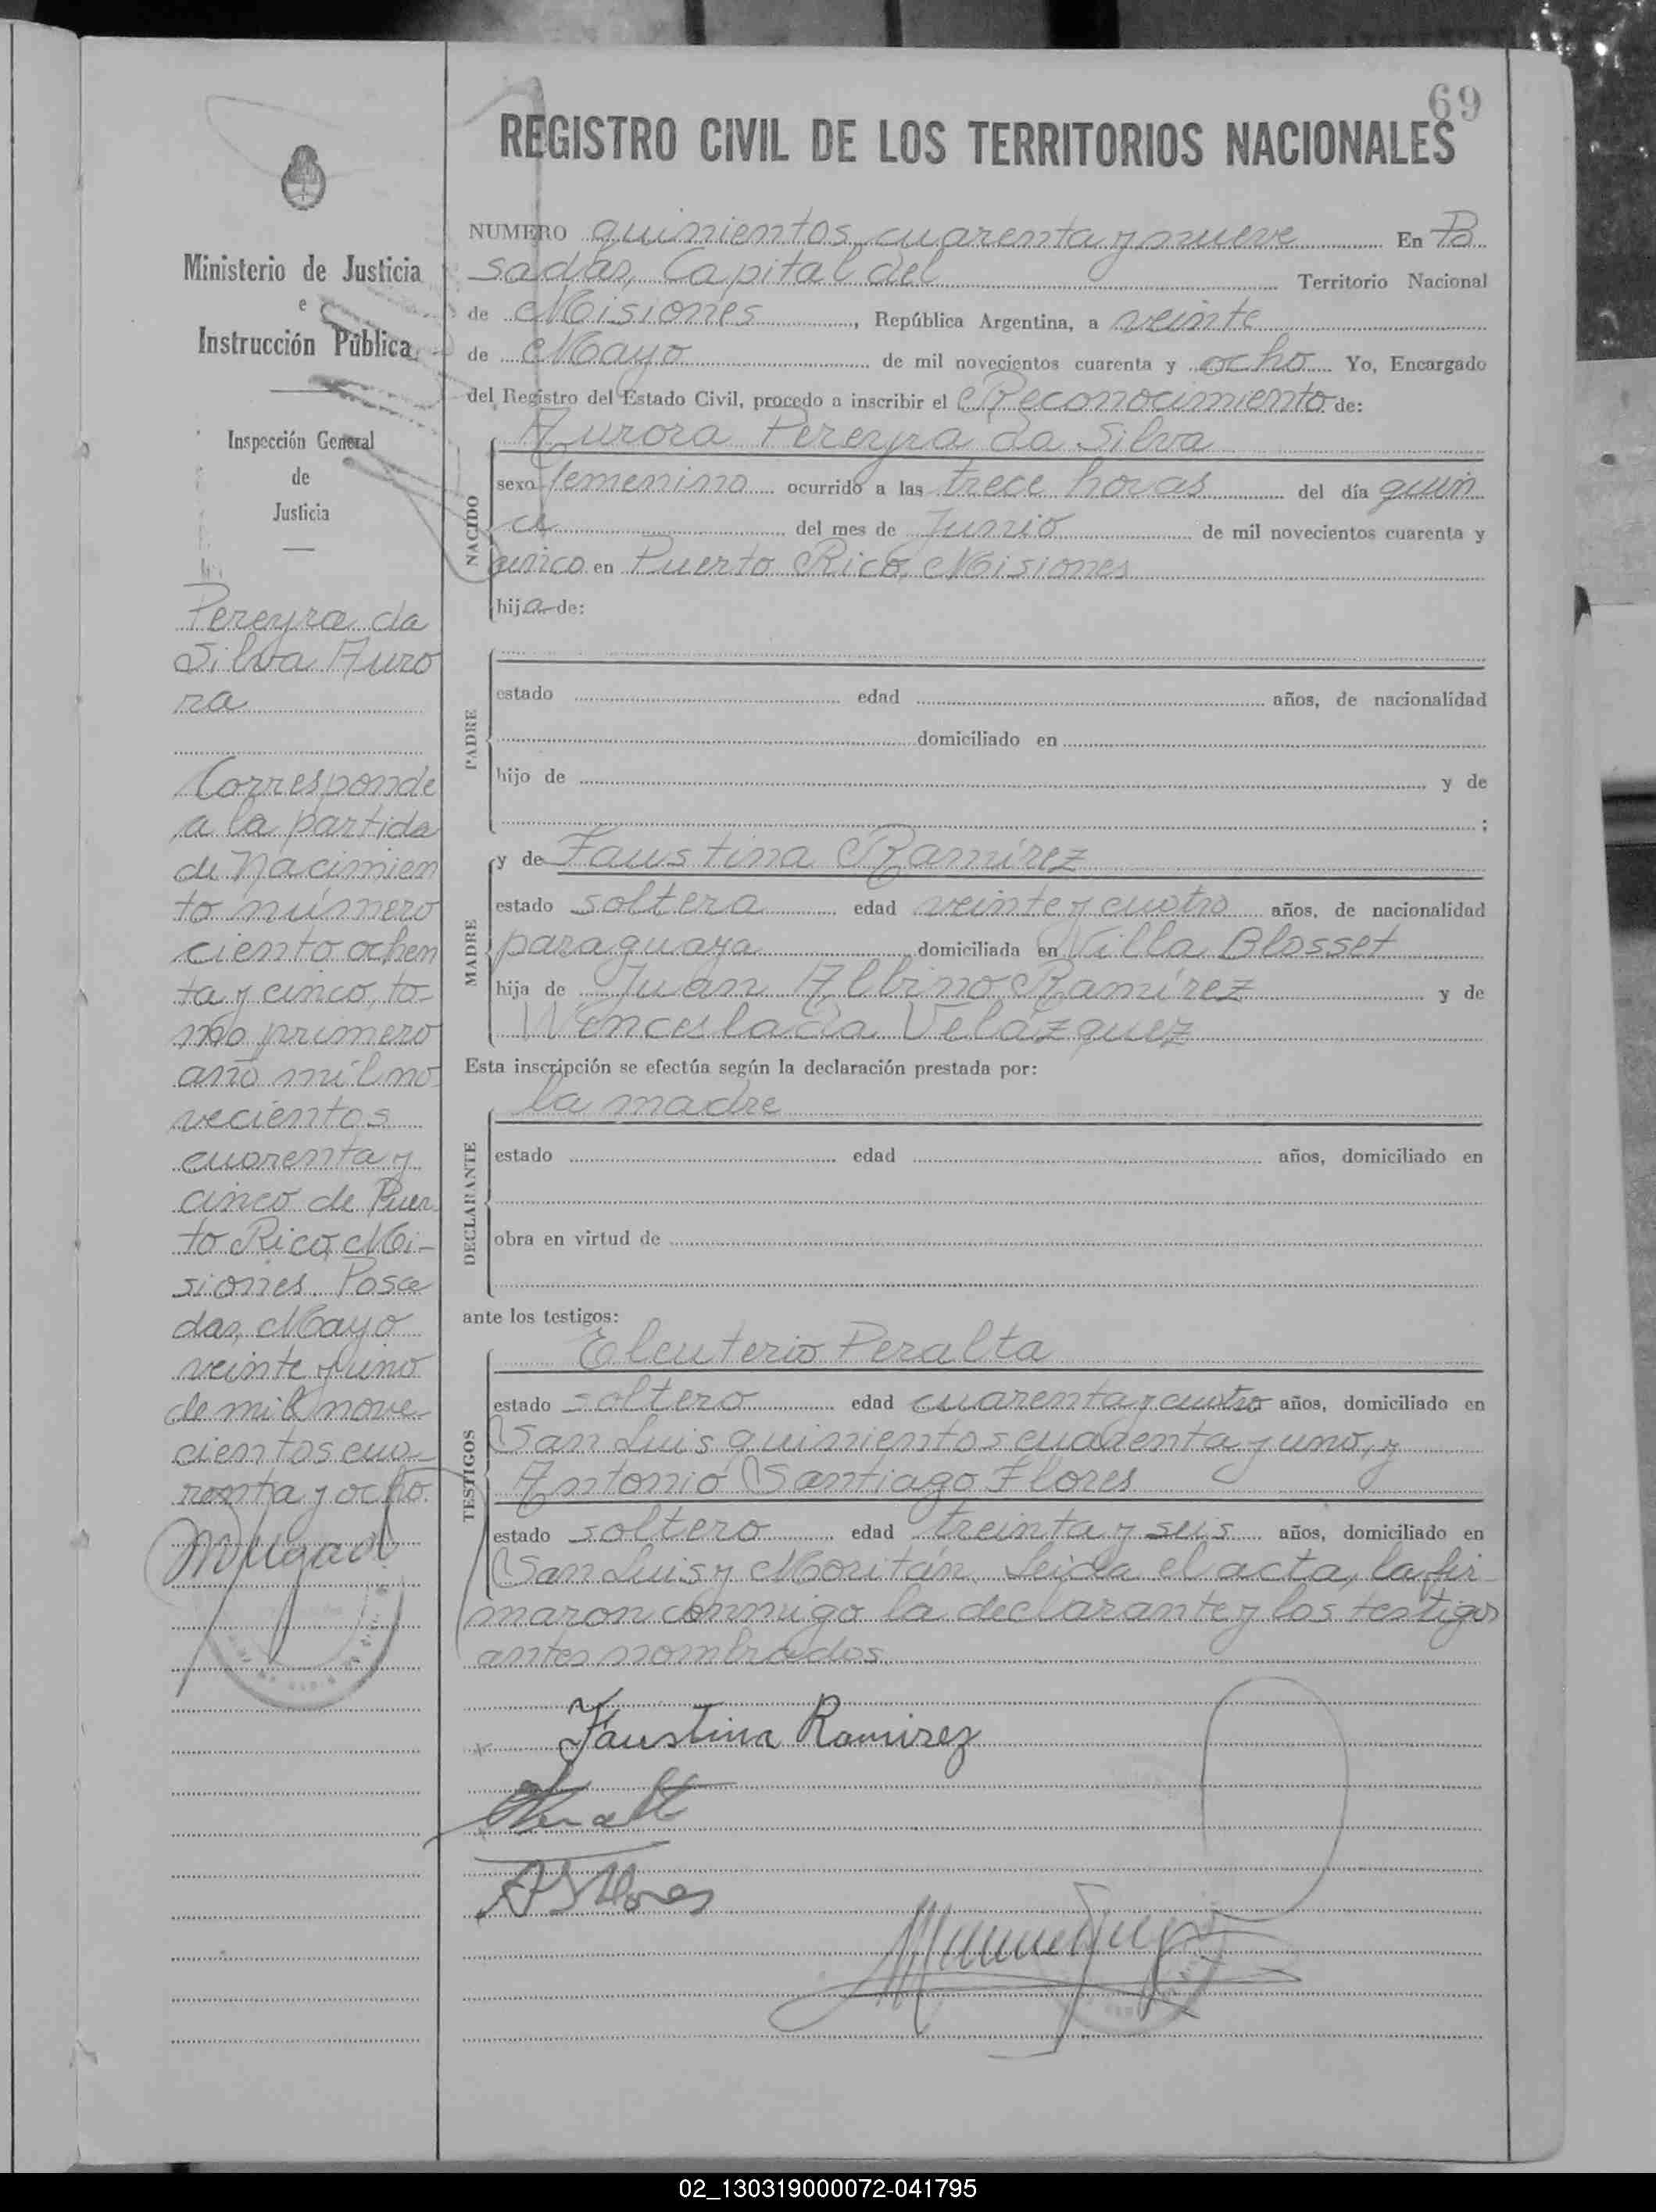 69
REGISTRO CIVIL DE LOS TERRITORIOS NACIONALES
Ministerio de Justicia
e
Instrucción Pública
Inspección General
de
Justicia
Pereyra da
Silva Auro
ra
Corresponde
a la partida
de Nacimien
to número
ciento ochen
ta y cinco, to-
mo primero
año mil no
vecientos
cuarenta y
cinco de Puer
to Rico, Mi-
siones. Posa
das, Mayo
veinte y uno
de mil nove
cientos cua-
renta y ocho.
NUMERO quinientos cuarenta y nueve En Po
sadas, Capital del Territorio Nacional
de Misiones, República Argentina, a veinte
de Mayo de mil novecientos cuarenta y ocho Yo, Encargado
del Registro del Estado Civil, procedo a inscribir el Reconocimiento de:
NACIDO
Aurora Pereyra da Silva
sexo femenino ocurrido a las trece horas del día quin
ce del mes de Junio de mil novecientos cuarenta y
cinco en Puerto Rico, Misiones
hija de:
PADRE
estado edad años, de nacionalidad
domiciliado en
hijo de y de
;
MADRE
y de Faustina Ramírez
estado soltera edad veinte y cuatro años, de nacionalidad
paraguaya domiciliada en Villa Blosset
hija de Juan Albino Ramírez y de
Wenceslada Velázquez
Esta inscripción se efectúa según la declaración prestada por:
DECLARANTE
la madre
estado edad años, domiciliado en
obra en virtud de
ante los testigos:
TESTIGOS
Eleuterio Peralta
estado soltero edad cuarenta y cuatro años, domiciliado en
San Luis quinientos cuarenta y uno, y
Antonio Santiago Flores
estado soltero edad treinta y seis años, domiciliado en
San Luis y Moritán. Leida el acta, la fir
maron conmigo la declarante y los testigos
antes nombrados.
Faustina Ramirez
A S Flores
02_130319000072-041795